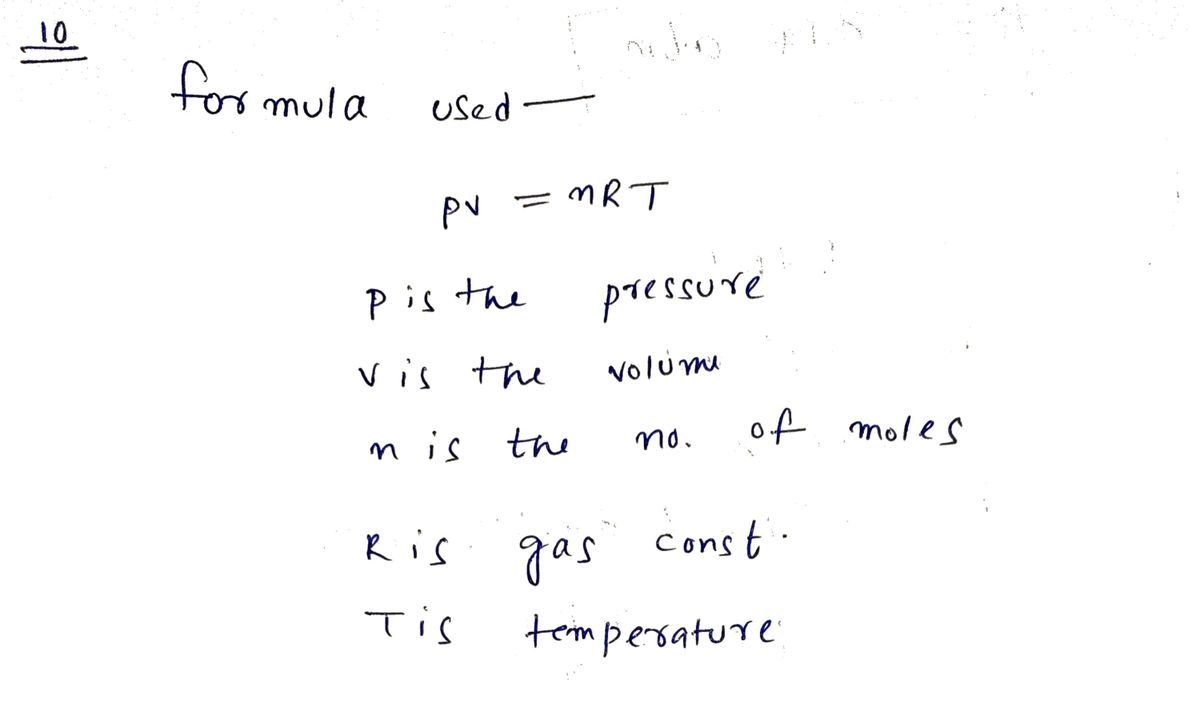 10
formula used —
pv = nRT
p is the pressure
v is the volume
n is the no. of moles
R is gas const.
T is temperature